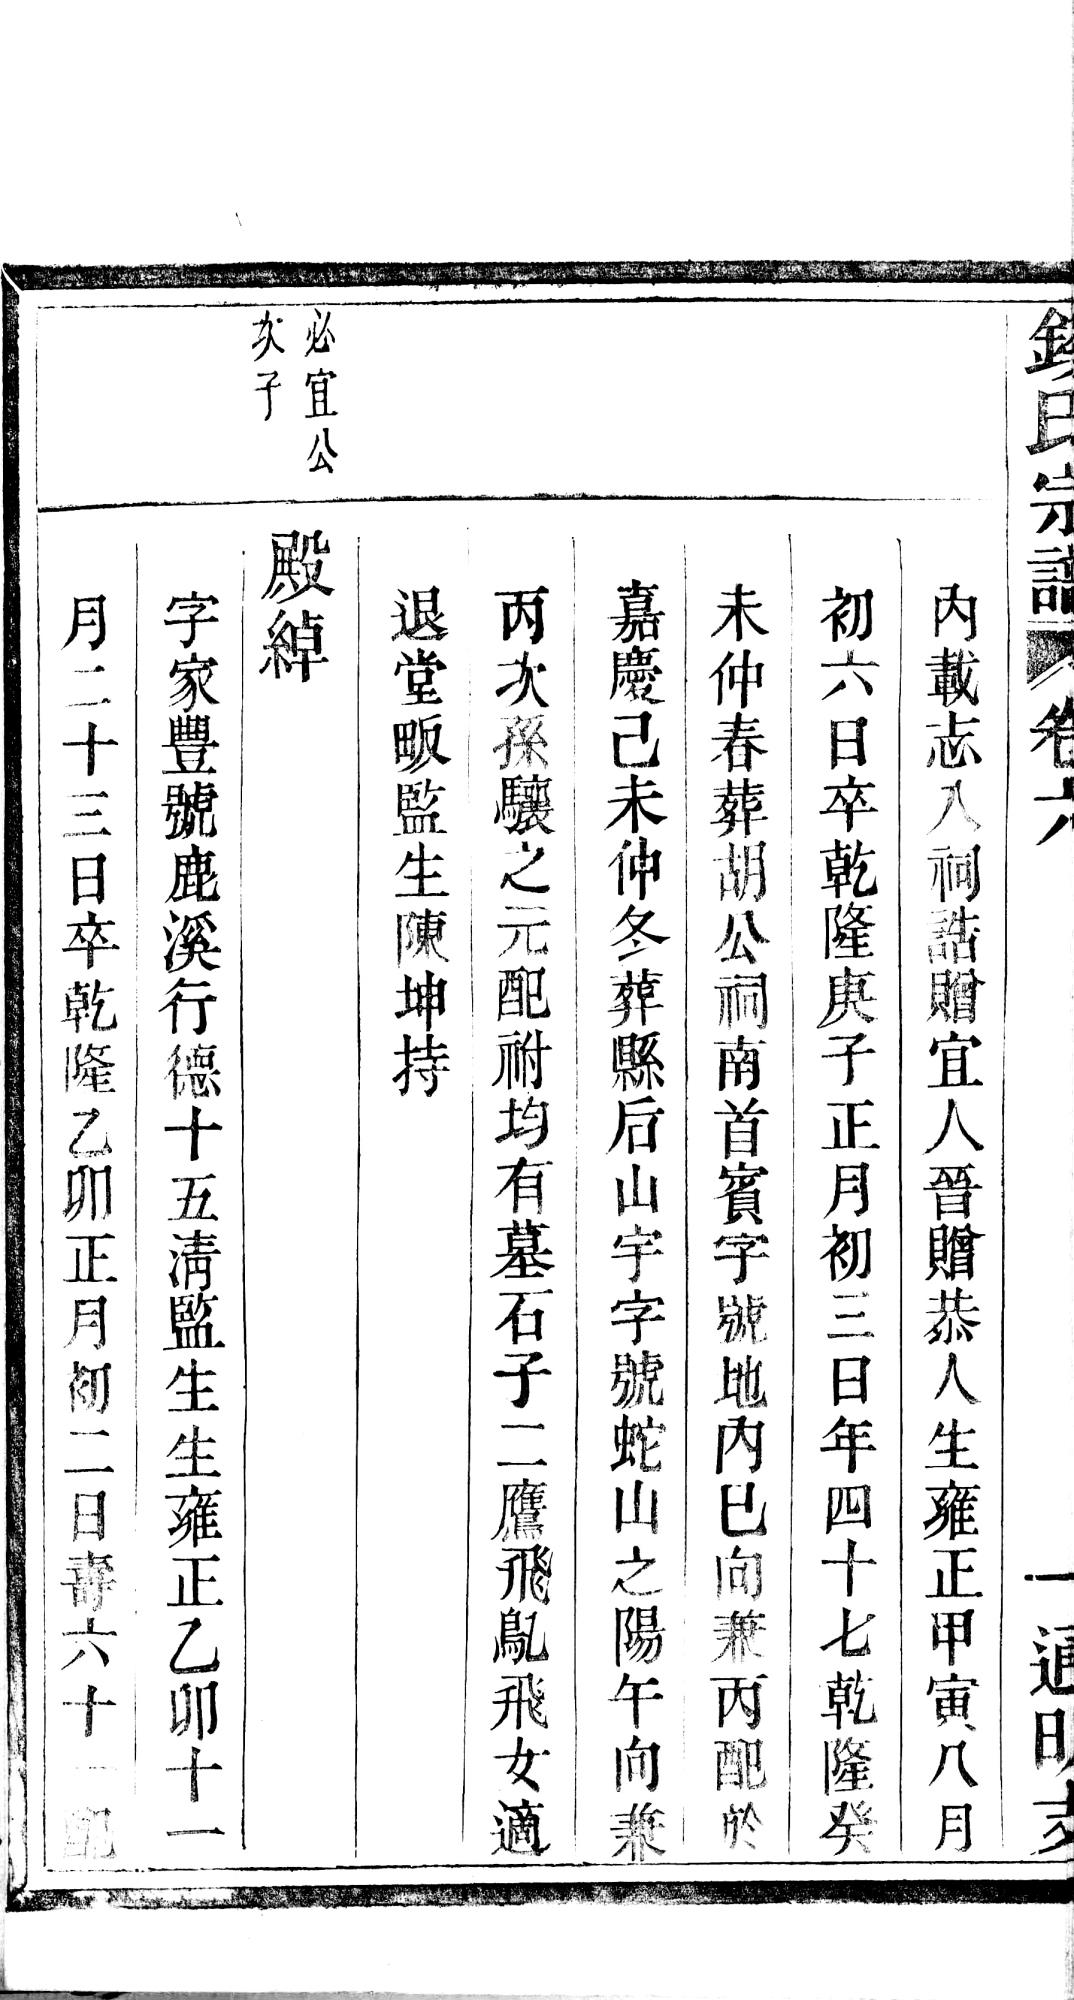 氏宗譜 卷六 一 通明支
內載志入祠誥贈宜人晉贈恭人生雍正甲寅八月
初六日卒乾隆庚子正月初三日年四十七乾隆癸
未仲春葬胡公祠南首賓字號地內巳向兼丙配於
嘉慶己未仲冬葬縣后山宇字號蛇山之陽午向兼
丙次孫驤之元配祔均有墓石子二鷹飛鳦飛女適
退堂畈監生陳坤持
必宜公
次子
殿綽
字家豐號鹿溪行德十五清監生生雍正乙卯十一
月二十三日卒乾隆乙卯正月初二日壽六十一配